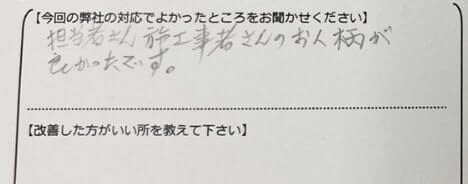 【今回の弊社の対応でよかったところをお聞かせください】
担当者さん 施工事者さんのお人柄が
良かったです。
【改善した方がいい所を教えて下さい】